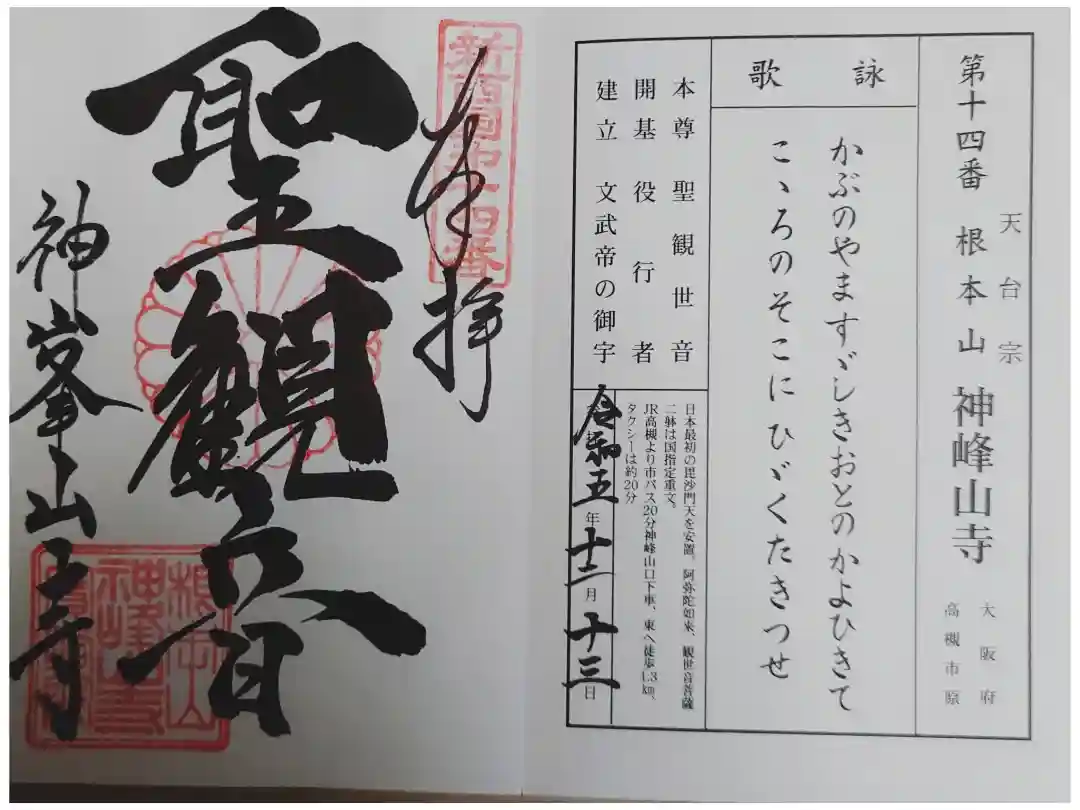 第十四番 根本山 神峰山寺
天台宗
大阪府
高槻市原
詠歌
かぶのやますゞしきおとのかよひきて
こゝろのそこにひゞくたきつせ
本尊 聖観世音
開基 役行者
建立 文武帝の御宇
日本最初の毘沙門天を安置。阿弥陀如来、観世音菩薩
二躰は国指定重文。
JR高槻より市バス20分神峰山口下車、東へ徒歩1.3㎞、
タクシーは約20分
令和五年十二月十三日
新西国第十四番
奉拝
聖觀音
神峯山寺